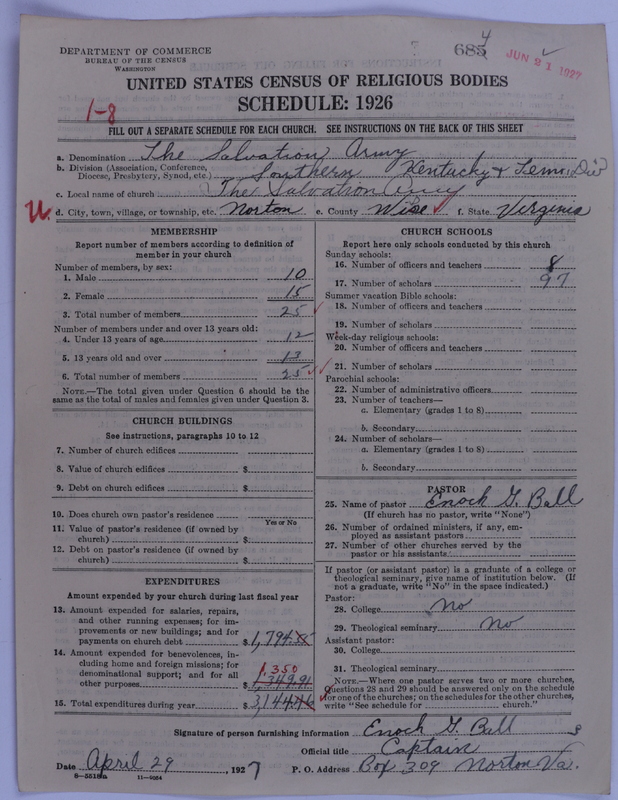 DEPARTMENT OF COMMERCE
BUREAU OF THE CENSUS
WASHINGTON
685 4
JUN 21 1927
UNITED STATES CENSUS OF RELIGIOUS BODIES
SCHEDULE: 1926
1-8
FILL OUT A SEPARATE SCHEDULE FOR EACH CHURCH. SEE INSTRUCTIONS ON THE BACK OF THIS SHEET
a. Denomination The Salvation Army
b. Division (Association, Conference, Diocese, Presbytery, Synod, etc.) Southern Kentucky & Tenn. Div
c. Local name of church The Salvation Army
U. d. City, town, village, or township, etc. Norton e. County Wise f. State Virginia
MEMBERSHIP
Report number of members according to definition of member in your church
Number of members, by sex:
1. Male 10
2. Female 15
3. Total number of members 25
Number of members under and over 13 years old:
4. Under 13 years of age 12
5. 13 years old and over 13
6. Total number of members 25
NOTE.—The total given under Question 6 should be the same as the total of males and females given under Question 3.
CHURCH BUILDINGS
See instructions, paragraphs 10 to 12
7. Number of church edifices
8. Value of church edifices $
9. Debt on church edifices $
10. Does church own pastor's residence
Yes or No
11. Value of pastor's residence (if owned by church) $
12. Debt on pastor's residence (if owned by church) $
EXPENDITURES
Amount expended by your church during last fiscal year
13. Amount expended for salaries, repairs, and other running expenses; for improvements or new buildings; and for payments on church debt $ 1,794.
14. Amount expended for benevolences, including home and foreign missions; for denominational support; and for all other purposes $ 1,350 1,349.91
15. Total expenditures during year $ 3,144.46
CHURCH SCHOOLS
Report here only schools conducted by this church
Sunday schools:
16. Number of officers and teachers 8
17. Number of scholars 97
Summer vacation Bible schools:
18. Number of officers and teachers
19. Number of scholars
Week-day religious schools:
20. Number of officers and teachers
21. Number of scholars
Parochial schools:
22. Number of administrative officers
23. Number of teachers—
a. Elementary (grades 1 to 8)
b. Secondary
24. Number of scholars—
a. Elementary (grades 1 to 8)
b. Secondary
PASTOR
25. Name of pastor Enoch G. Ball
(If church has no pastor, write "None")
26. Number of ordained ministers, if any, employed as assistant pastors
27. Number of other churches served by the pastor or his assistants
If pastor (or assistant pastor) is a graduate of a college or theological seminary, give name of institution below. (If not a graduate, write "No" in the space indicated.)
Pastor:
28. College No
29. Theological seminary No
Assistant pastor:
30. College
31. Theological seminary
NOTE.—Where one pastor serves two or more churches, Questions 28 and 29 should be answered only on the schedule for one of the churches; on the schedules for the other churches, write "See schedule for church."
Signature of person furnishing information Enoch G. Ball
Official title Captain
Date April 29, 1927 P. O. Address Box 309 Norton Va.
8-5518a 11-9264